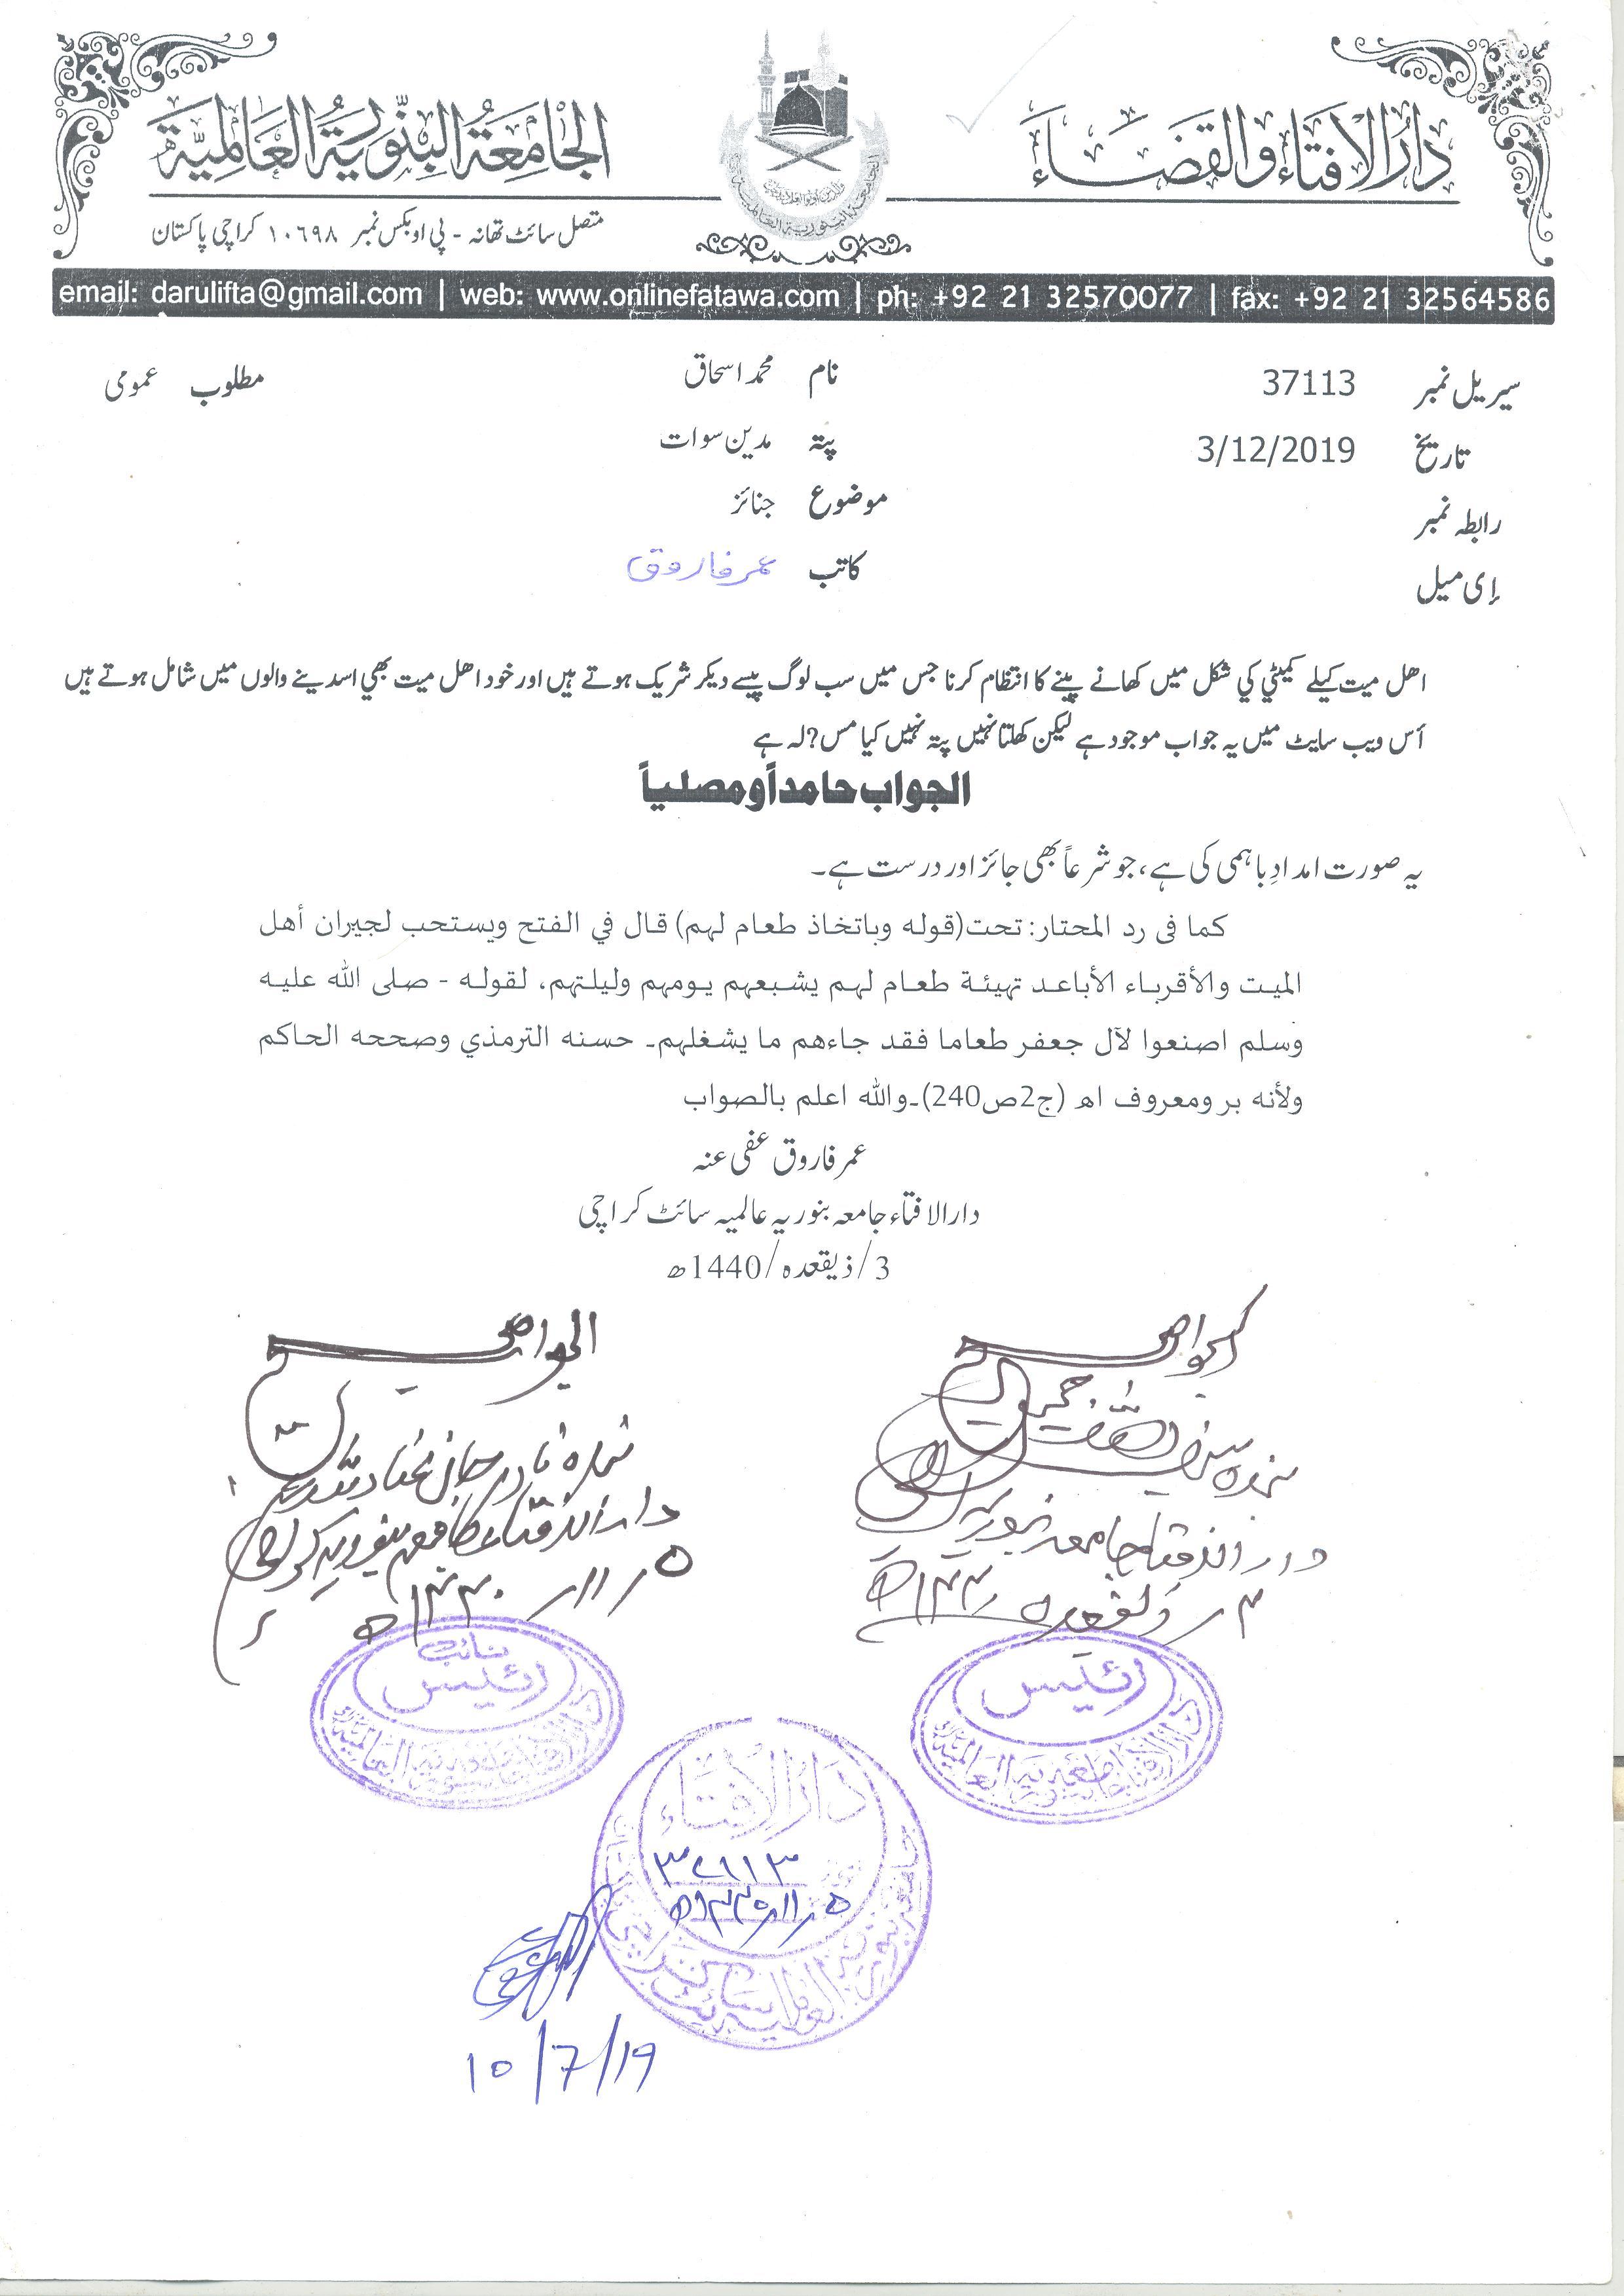 دارُالافتاء والقضاء
الجامعۃ البنوریۃ العالمیۃ
متصل سائٹ تھانہ - پی او بکس نمبر ۱۰۶۹۸ کراچی پاکستان
email: darulifta@gmail.com | web: www.onlinefatawa.com | ph: +92 21 32570077 | fax: +92 21 32564586
سیریل نمبر 37113 نام محمد اسحاق مطلوب عمومی
تاریخ 3/12/2019 پتہ مدین سوات
رابطہ نمبر موضوع جنائز
إی میل کاتب عمر فاروق
اھل میت کیلے کمیٹي کي شکل میں کھانے پینے کا انتظام کرنا جس میں سب لوگ پیسے دیکر شریک ہوتے ہیں اور خود اھل میت بھي اسدینے والوں میں شامل ہوتے ہیں
أس ویب سایٹ میں یہ جواب موجود ہے لیکن کھلتا نہیں پتہ نہیں کیا مس?لہ ہے
الجواب حامداً ومصلیاً
یہ صورت امدادِ باہمی کی ہے، جو شرعاً بھی جائز اور درست ہے۔
كما فى رد المحتار: تحت (قوله وباتخاذ طعام لهم) قال في الفتح ويستحب لجيران أهل
الميت والأقرباء الأباعد تهيئة طعام لهم يشبعهم يومهم وليلتهم، لقوله - صلى الله عليه
وسلم اصنعوا لآل جعفر طعاما فقد جاءهم ما يشغلهم۔ حسنه الترمذي وصححه الحاكم
ولأنه بر ومعروف اھ (ج2ص240)۔والله اعلم بالصواب
عمر فاروق عفی عنہ
دارالافتاء جامعہ بنوریہ عالمیہ سائٹ کراچی
3/ذیقعدہ/1440ھ
الجواب صحیح
دار الافتاء جامعہ بنوریہ
الجواب صحیح
بندہ نادر جان
دار الافتاء جامعہ بنوریہ کراچی
۵/۱۱/۱۴۴۰ھ
رئیس
نائب رئیس
دارالافتاء
۳۷۱۱۳
۵/۱۱/۱۴۴۰ھ
10/7/19